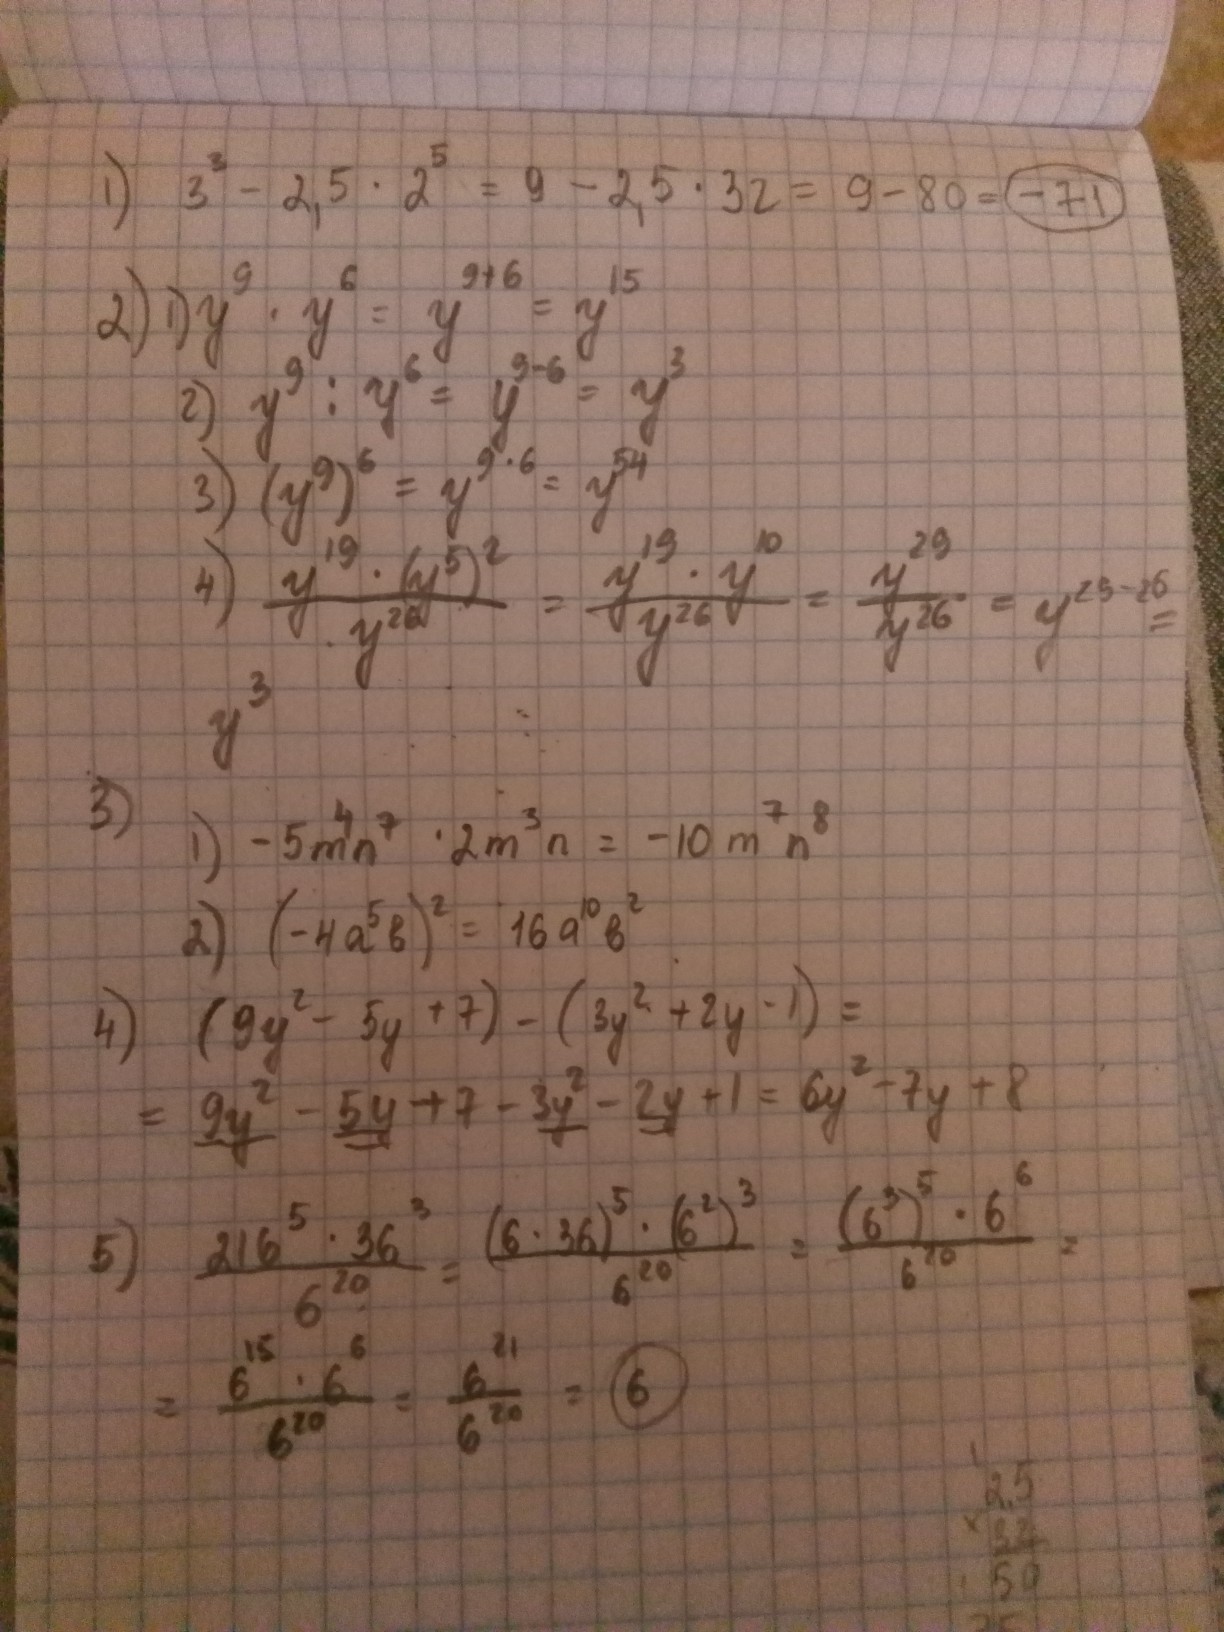 1) 3³ - 2,5 · 2⁵ = 9 - 2,5 · 32 = 9 - 80 = -71
2) 1) y⁹ · y⁶ = y⁹⁺⁶ = y¹⁵
2) y⁹ : y⁶ = y⁹⁻⁶ = y³
3) (y⁹)⁶ = y^(9·6) = y⁵⁴
4) (y¹⁹ · (y⁵)²)/y²⁶ = (y¹⁹ · y¹⁰)/y²⁶ = y²⁹/y²⁶ = y²⁹⁻²⁶ =
y³
3)
1) -5m⁴n⁷ · 2m³n = -10m⁷n⁸
2) (-4a⁵b)² = 16a¹⁰b²
4) (9y² - 5y + 7) - (3y² + 2y - 1) =
= 9y² - 5y + 7 - 3y² - 2y + 1 = 6y² - 7y + 8
5) (216⁵ · 36³)/6²⁰ = ((6 · 36)⁵ · (6²)³)/6²⁰ = ((6³)⁵ · 6⁶)/6²⁰ =
= (6¹⁵ · 6⁶)/6²⁰ = 6²¹/6²⁰ = 6
1
2,5
× 32
50
75